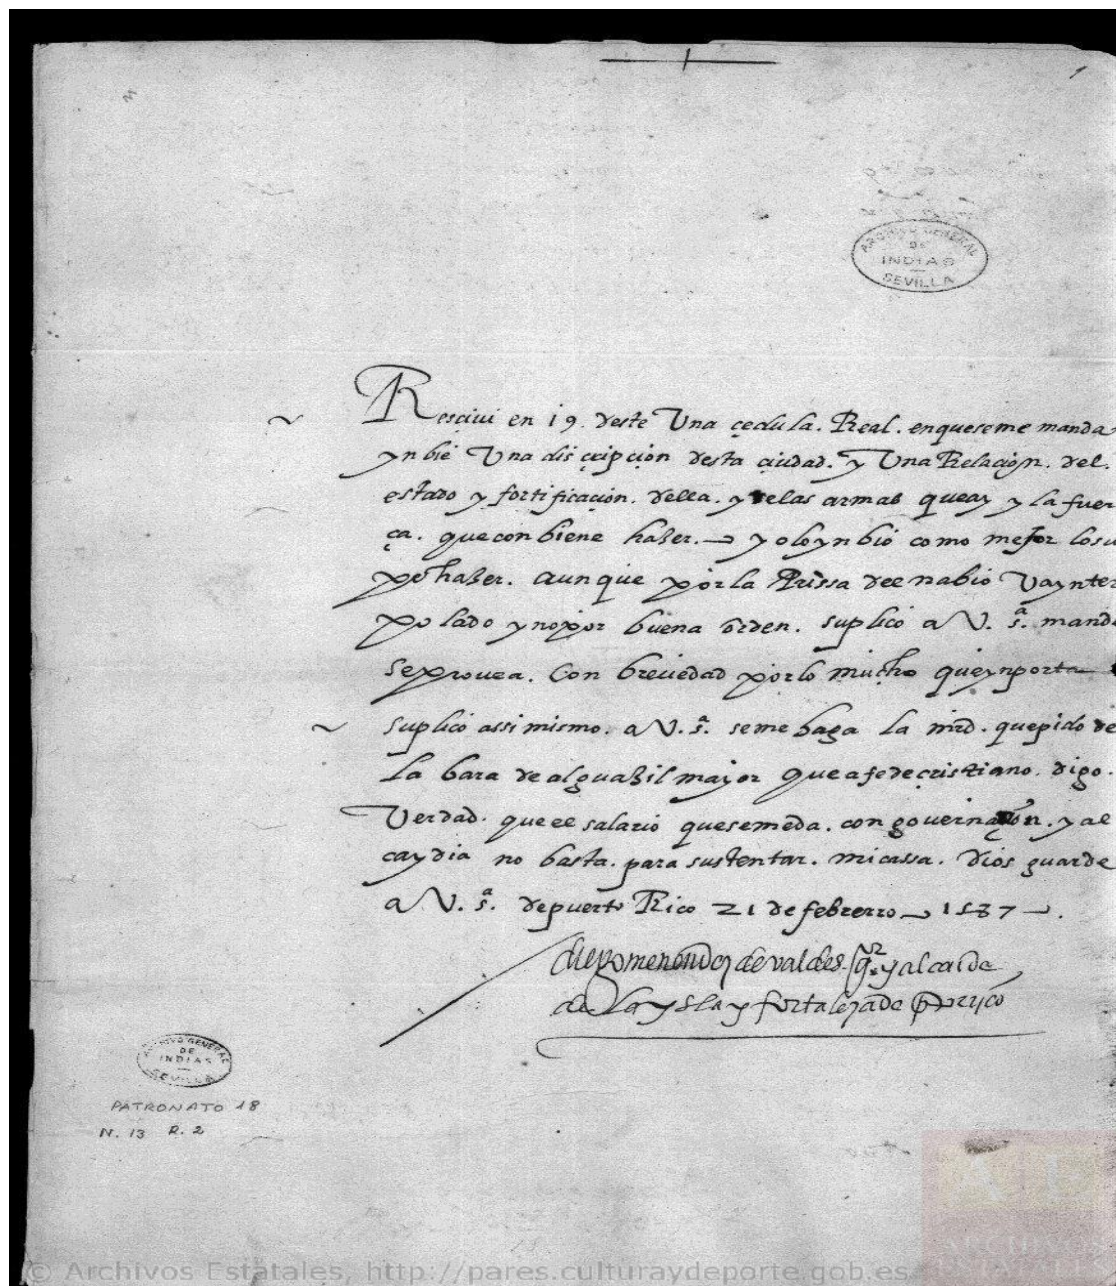 1
ARCHIVO GENERAL
DE
INDIAS
SEVILLA
Rescivi en 19. deste Una çedula. Real. enqueseme manda
ynbie Una discripçion desta ciudad. y Una Relaçion. del.
estado y fortificacion. della. y delas armas queay y la fuer
ça. queconbiene haçer. yoloynbio como mejor losu
pe haçer. aunque porla Prissa del nabio Vaynter
polado ynopor buena orden. suplico a V. sª. mande
seprovea. Con brevedad porlo mucho queynporta
suplico assimismo. a V. sª. semehaga la mrd. quepido de
la bara dealguaçil mayor queafedecristiano. digo.
Verdad. queel salario quesemeda. con governaçon. y al
caydia no basta. para sustentar. micassa. Dios guarde
a V. sª. depuerto Rico 21 defebrerro 1587
diegomenendez devaldes. gor yalcaide
de la ysla y fortalezade Portorico
ARCHIVO GENERAL
DE
INDIAS
SEVILLA
PATRONATO 18
N. 13 R. 2
© Archivos Estatales, http://pares.culturaydeporte.gob.es
ARCHIVOS
ESTATALES